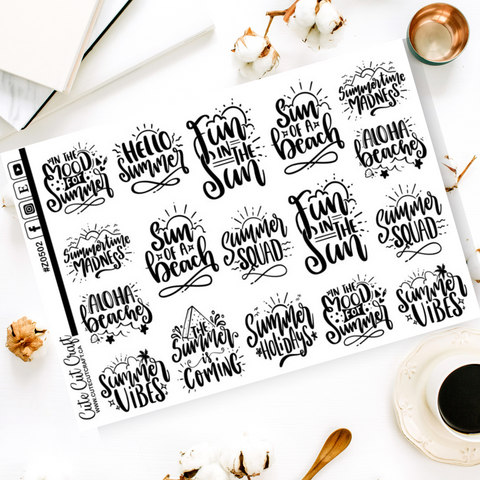 IN THE
MOOD
FOR
Summer
HELLO
Summer
Fun
IN THE
Sun
Sun
OF A
beach
Summertime
MADNESS
ALOHA
beaches
Summertime
MADNESS
Sun
OF A
beach
Summer
SQUAD
Fun
IN THE
Sun
Summer
SQUAD
ALOHA
beaches
Summer
VIBES
THE
Summer
IS
COMING
Summer
HOLIDAYS
IN THE
MOOD
FOR
Summer
Summer
VIBES
#Z0502
Cute Cut Craft
WWW.CUTECUTCRAFT.CA